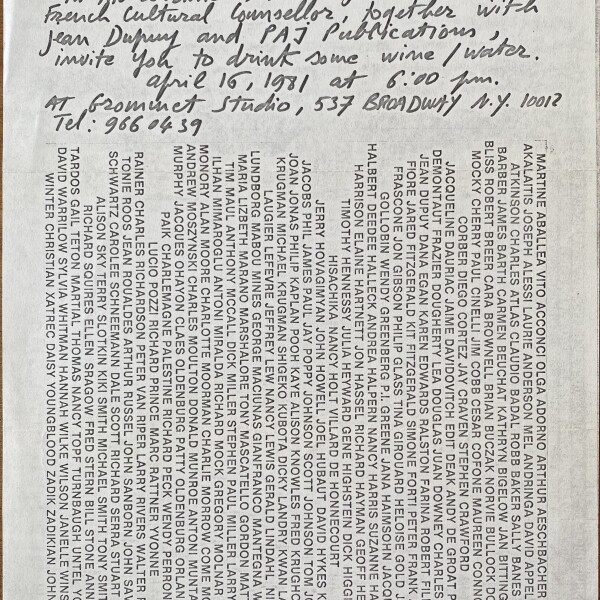 French Cultural Counsellor, together with
Jean Dupuy and PAJ Publications,
invite you to drink some wine/water.
april 16, 1981 at 6:00 pm.
AT Grommet Studio, 537 BROADWAY N.Y. 10012
Tel: 966 04 39
MARTINE ABALLEA VITO ACCONCI OLGA ADORNO ARTHUR AESCHBACHER
AKALAITIS JOSEPH ALESSI LAURIE ANDERSON MEL ANDRINGA DAVID APPEL
ATKINSON CHARLES ATLAS CLAUDIO BADAL ROBB BAKER SALLY BANES
BARBER JAMES BARTH CARMEN BEUCHAT KATHRYN BIGELOW
BLISS ROBERT BREER CARA BROWNELL BRIAN BUCZAK
MOCKY CHERRY PAULA COURT CESAR COZONNE MAUREEN CONNOR
CORBER DIEGO CORTEZ STEPHEN CRAWFORD
JACQUELINE DAURIAC JAIME DAVIDOVITCH EDIT DEAK ANDY DE GROAT
DEMONTAUT FRAZIER DOUGHERTY LEA DOUGLAS JUAN DOWNEY CHARLES
JEAN DUPUY DANA EGAN KAREN EDWARDS RALSTON FARINA ROBERT
FIORE JARED FITZGERALD KIT FITZGERALD SIMONE FORTI PETER FRANK
FRASCONE JON GIBSON PHILIP GLASS TINA GIROUARD HELOISE GOLD
GOLLOBIN WENDY GREENBERG P.I. GREENE JANA HAIMSOHN
HALBERT DEEDEE HALLECK ANDREA HALPERN NANCY HARRIS SUZANNE
HARRISON ELAINE HARTNETT JON HASSEL RICHARD HAYMAN GEOFF
TIMOTHY HENNESSY JULIA HEYWARD GENE HIGHSTEIN DICK
HISACHIKA NANCY HOLT VILLARD DE HONNECOURT
JERRY HOVAGIMYAN JOHN HOWELL JOEL HUBAUT DAVID HYKES
JACOBS PHIL JAMES PAUL JAY POPPY JOHNSON SCOTT JOHNSON TOM
JOAN JONAS PHILIP KAPLAN POOH KAYE ALISON KNOWLES FRED
KRUGMAN MICHAEL KRUGMAN SHIGEKO KUBOTA DICKY LANDRY KWAN
LAUGIER LEFEVRE JEFFREY LEW NANCY LEWIS GERALD LINDAHL
LUNDBORG MABOU MINES GEORGE MACIUNAS GIANFRANCO MANTEGNA
MARIA LIZBETH MARANO MARSHALORE TONY MASCATELLO GORDON
TIM MAUL ANTHONY MCCALL DICK MILLER STEPHEN PAUL MILLER LARRY
ILHAN MIMAROGLU ANTONI MIRALDA RICHARD MOCK GREGORY MOLNAR
MONORY ALAN MOORE CHARLOTTE MOORMAN CHARLIE MORROW COME
ANDREW MOSZYNSKI CHARLES MOULTON DONALD MUNROE ANTONI
MURPHY JACQUES OHAYON CLAES OLDENBURG PATTY OLDENBURG
PAIK CHARLEMAGNE PALESTINE RICHARD PECK WENDY
LUCIO POZZI RICHARD PRINCE MARC RATTNER YVONNE
RAINER CHARLIE RICHARDSON PIETER VAN RIPER LARRY RIVERS WALTER
TONIE ROOS JEAN ROUALDES ARTHUR RUSSEL JOHN SANBORN JON
SCHWARTZ CAROLEE SCHNEEMANN DALE SCOTT RICHARD SERRA STUART
ALISON SKY TERRY SLOTKIN KIKI SMITH MICHAEL SMITH TONY
RICHARD SQUIRES ELLEN SRAGOW FRED STERN BILL STONE
TARDOS GAIL TETON MARTIAL THOMAS NANCY TOPF TURNBAUGH UNTEL
DAVID WARRILOW SYLVIA WHITMAN HANNAH WILKE WILSON JANELLE
WINTER CHRISTIAN XATREC DAISY YOUNGBLOOD ZADIK ZADIKIAN JOHN